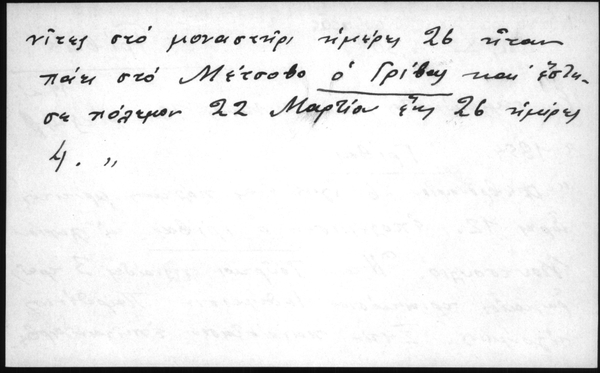 νῖτες στό μοναστῆρι ἡμέρες 26 ἦταν
πάει στό Μέτσοβο ὁ Γρίβας καί ἔστη-
σε πόλεμον 22 Μαρτίου ἕως 26 ἡμέρες
4. „